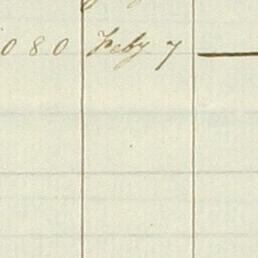 080 Feby 7